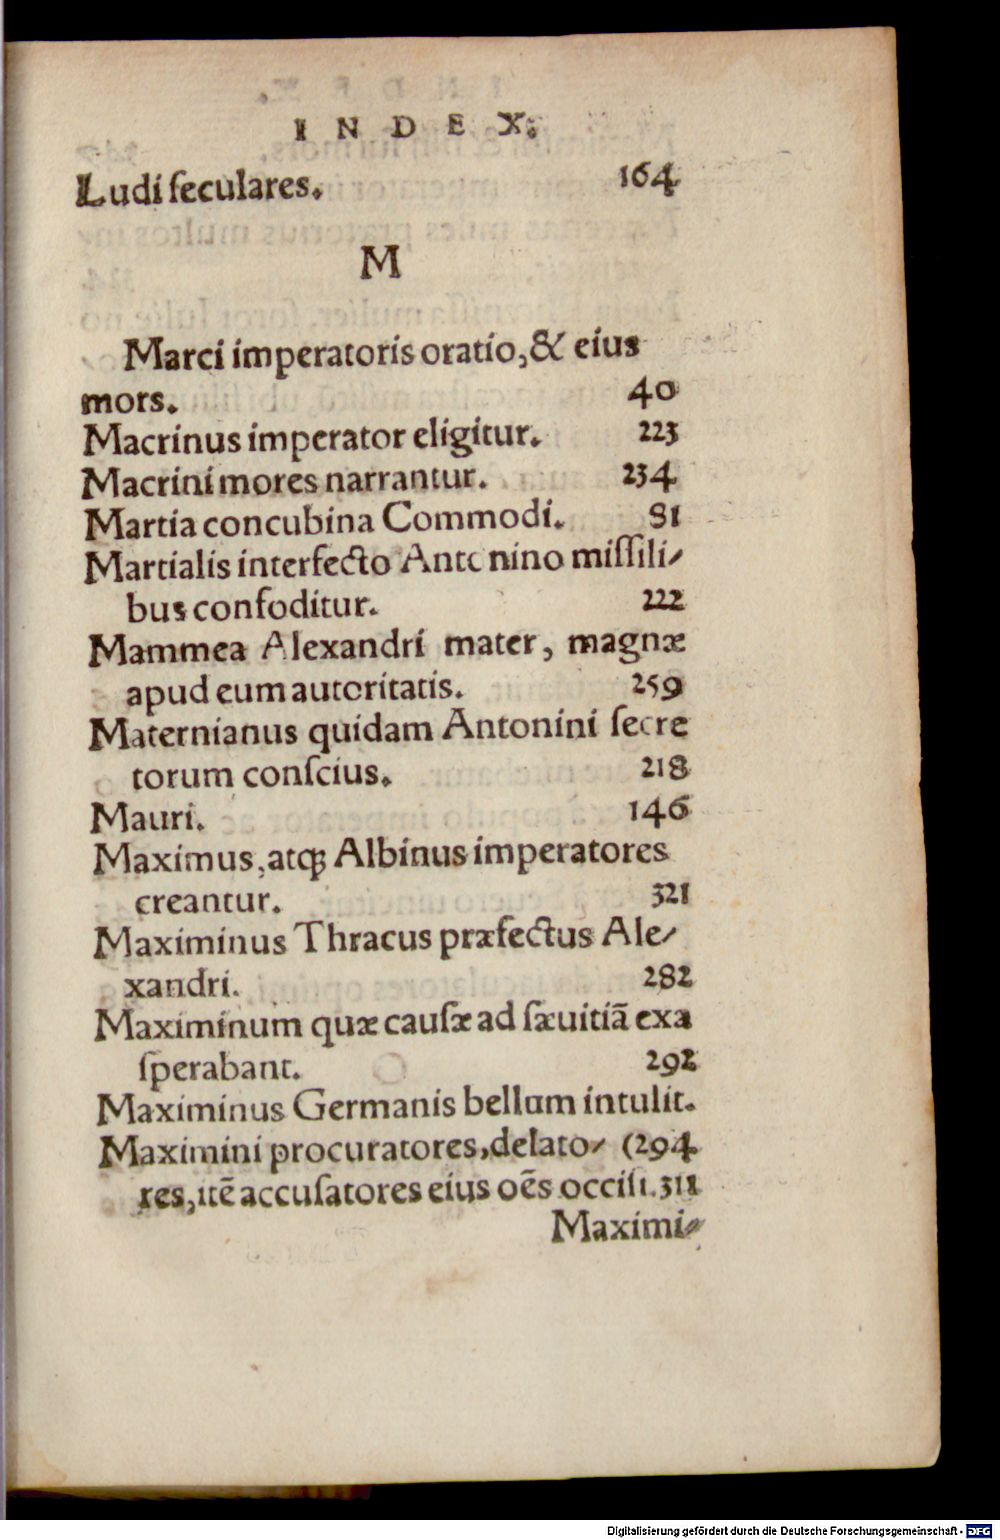 INDEX.
Ludi ſeculares. 164
M
Marci imperatoris oratio, & eius
mors. 40
Macrinus imperator eligitur. 223
Macrini mores narrantur. 234
Martia concubina Commodi. 81
Martialis interfecto Antonino miſſili⸗
bus confoditur. 222
Mammea Alexandri mater, magnæ
apud eum autoritatis. 259
Maternianus quidam Antonini ſecre
torum conſcius. 218
Mauri. 146
Maximus, atqꝫ Albinus imperatores
creantur. 321
Maximinus Thracus præfectus Ale⸗
xandri. 282
Maximinum quæ cauſæ ad ſæuitiā exa
ſperabant. 292
Maximinus Germanis bellum intulit.
Maximini procuratores, delato⸗ (294
res, itē accuſatores eius oēs occiſi. 311
Maximi⸗
Digitalisierung gefördert durch die Deutsche Forschungsgemeinschaft - DFG